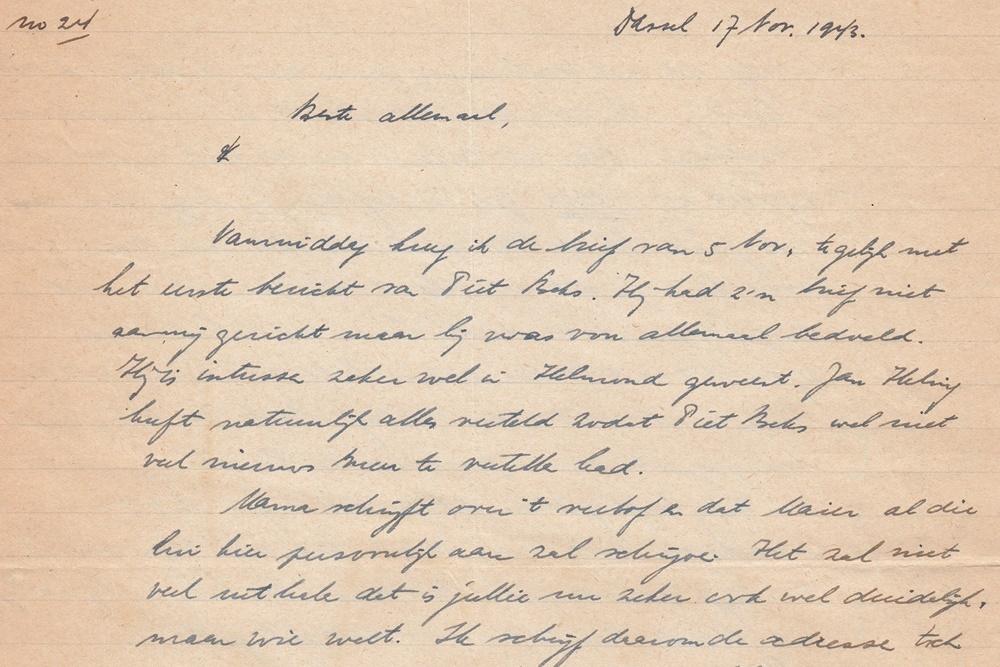 no 24
Dassel 17 Nov. 1943.
Beste allemaal,
Vanmiddag kreeg ik de brief van 5 Nov., tegelijk met
het eerste bericht van Piet Beks. Hij had z'n brief niet
aan mij gericht maar hij was voor allemaal bedoeld.
Hij is intussen zeker wel in Helmond geweest. Jan
heeft natuurlijk alles verteld zodat Piet Beks wel niet
veel nieuws meer te vertellen had.
Mama schrijft over 't verlof en dat Maier al die
lui hier persoonlijk aan zal schrijven. Het zal niet
veel uithalen dat is jullie nu zeker ook wel duidelijk,
maar wie weet. Ik schrijf daarom de adressen toch